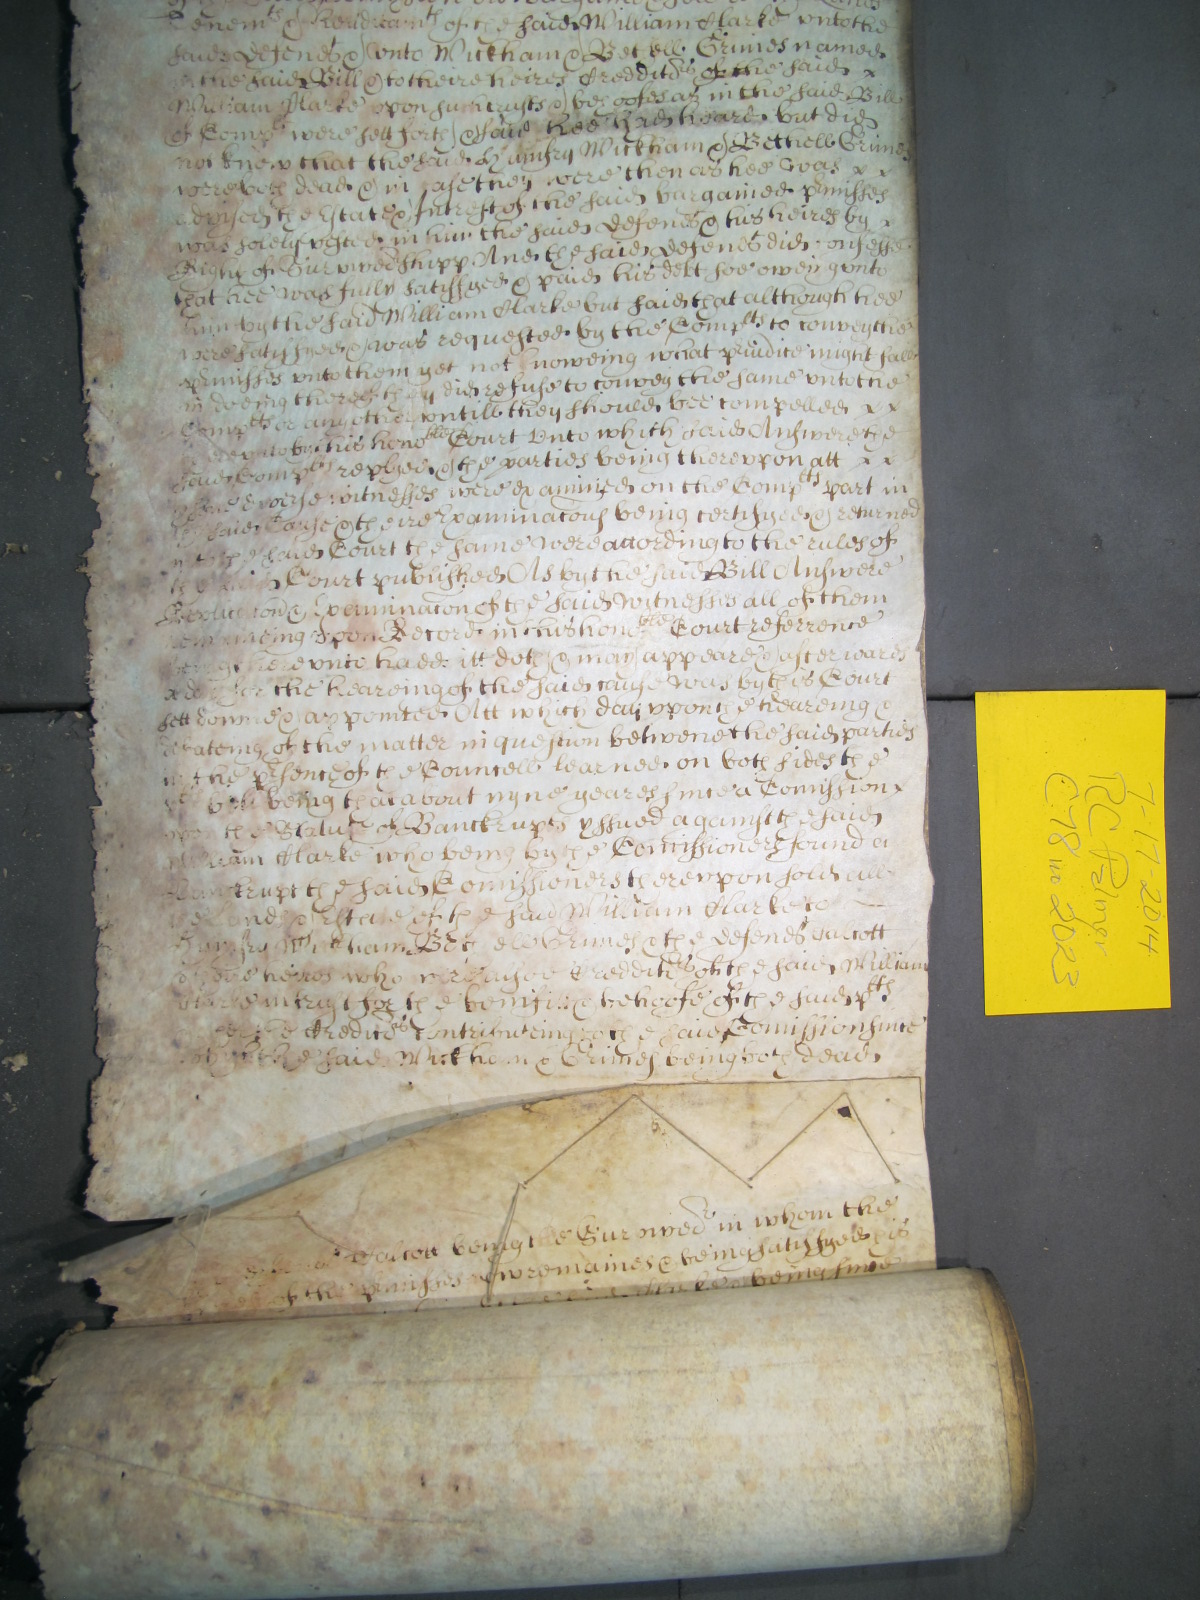 Tenemts & hereditamts of the said William Clarke unto the
said Defendt & unto Wickham & Bethell Grimes named
in the said Bill & to theire heires Credditors of the said x
William Clarke upon such trusts & behoofes as in the said Bill
of Compt were sett forth & said hee had heard but did
not know that the said Humfry Wickham & Bethell Grimes
were both dead & in case they were then as hee was x x
advised the Estate & Interest of the said bargained pmisses
was solely vested in him the said Defendt & his heires by x
Right of Survivorshipp And the said Defendt did confesse
that hee was fully satisfyed & paid his debt soe oweing unto
him by the said William Clarke but said that although hee
were satisfyed & was requested by the Complts to convey the
pmisses unto them yet not knoweing what piudice might fall
in doeing thereof they did refuse to convey the same unto the
Complts or any other untill they should bee compelled x x
thereunto by this honoble Court Unto which said Answere the
said Complts replyed & the parties being thereupon att x x
witnesses were examined on the Complts part in
the said Cause & theire Examinacons being certifyed & returned
into the said Court the same were according to the rules of
the said Court published As by the said Bill Answere
Replicacon & Examinacon of the said witnesses all of them
remaineing upon Record in this honoble Court referrence
being thereunto had itt doth & may appeare & afterwards
a day for the heareing of the said cause was by this Court
sett downe & appointed Att which day upon the heareing &
debateing of the matter in question betweene the said parties
in the psence of the Councell learned on both sides the
being that about nyne yeares since a Comission x
upon the Statute of Banckrupts yssued against the said
William Clarke who being by the Comissioners found a
Banckrupt the said Comissioners thereupon sold all
the Lands & Estate of the said William Clarke to
Humfry Wickham Bethell Grimes & the Defendt Talcott
& their heires who were alsoe Credditors of the said William
Clarke in trust for the benifitt & behoofe of the said plts
Creditors Contributeing to the said Comission since
which the said Wickham & Grimes being both dead
Talcott being the Survivor in whom the
of the pmisses now remaines & being satisfyed is
being since
7-17-2014
RC Palmer
C78 no 2023